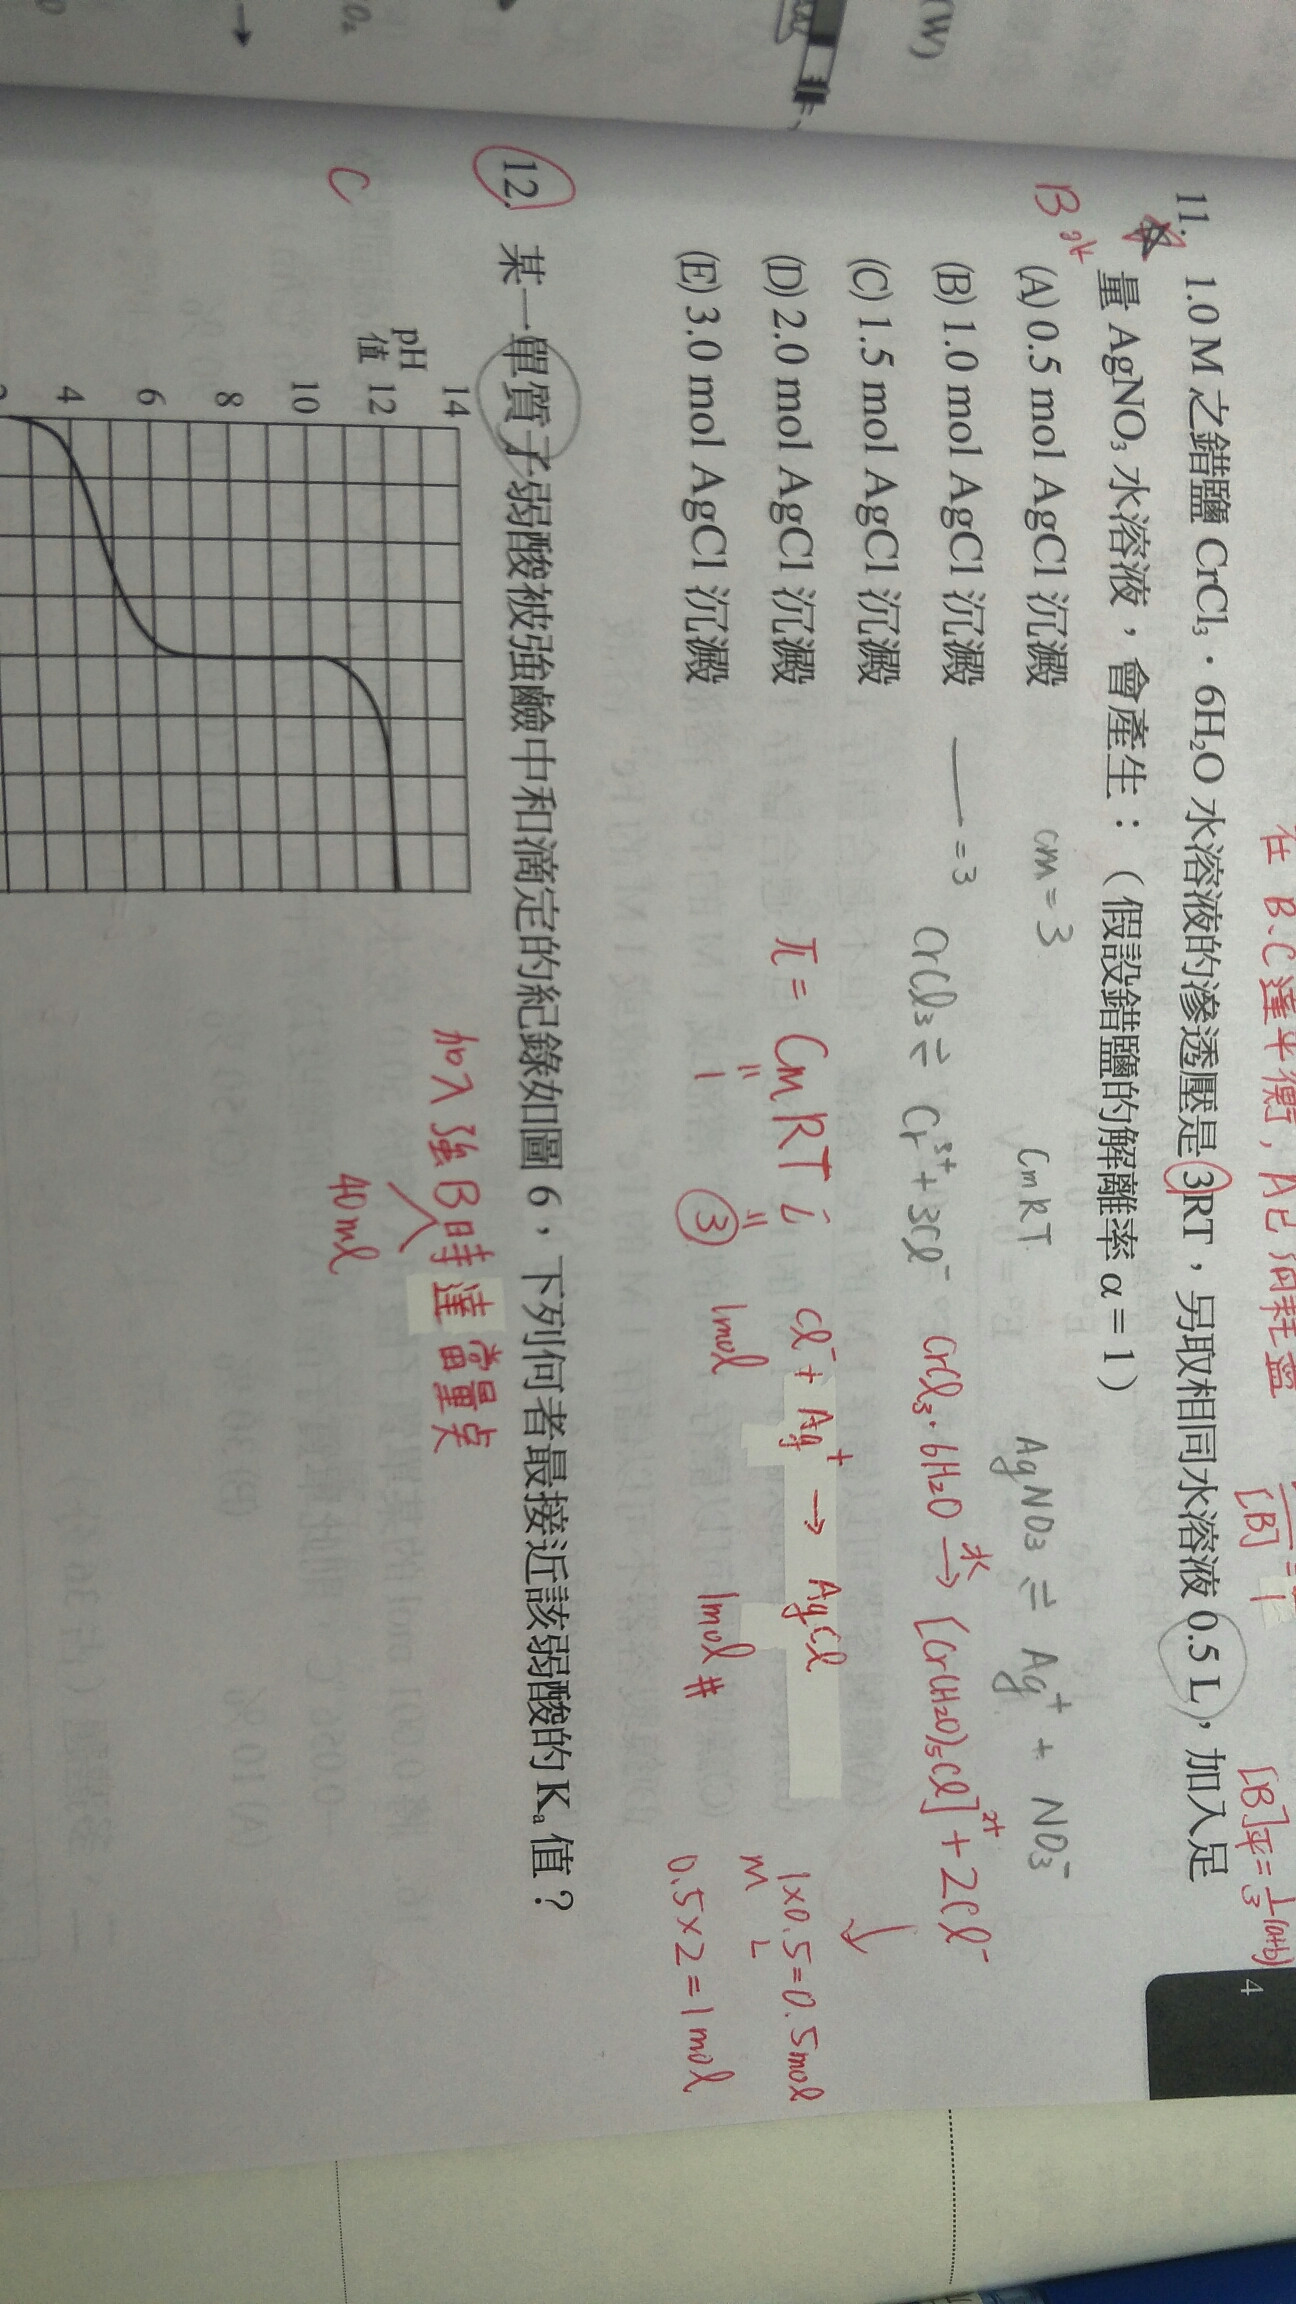 (W)
O₂
在 B、C 達平衡, A已消耗盡
[B]
[B]平=1/3(a+b)
4
11. 1.0 M 之錯鹽 CrCl₃・6H₂O 水溶液的滲透壓是 3RT,另取相同水溶液 0.5 L,加入足
量 AgNO₃ 水溶液,會產生:(假設錯鹽的解離率 α = 1)
B
(A) 0.5 mol AgCl 沉澱
cm = 3
CmRT
AgNO₃ ⇌ Ag⁺ + NO₃⁻
(B) 1.0 mol AgCl 沉澱
= 3
CrCl₃ ⇌ Cr³⁺ + 3Cl⁻
CrCl₃・6H₂O 水→ [Cr(H₂O)₅Cl]²⁺ + 2Cl⁻
(C) 1.5 mol AgCl 沉澱
(D) 2.0 mol AgCl 沉澱
π = CmRT i
Cl⁻ + Ag⁺ → AgCl
1×0.5=0.5mol
M L
(E) 3.0 mol AgCl 沉澱
1
3
1mol
1mol #
0.5×2=1mol
12. 某一單質子弱酸被強鹼中和滴定的紀錄如圖 6,下列何者最接近該弱酸的 Kₐ 值?
C
加入強B時達當量点
40ml
14
pH
值
12
10
8
6
4
2